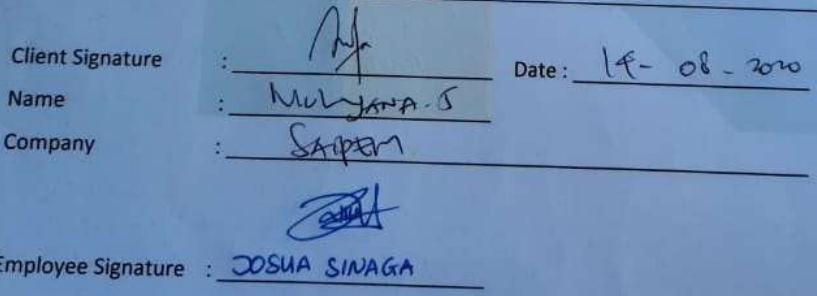 Client Signature : Date : 14- 08 - 2020
Name : MULYANA. S
Company : SAIPEM
Employee Signature : JOSUA SINAGA